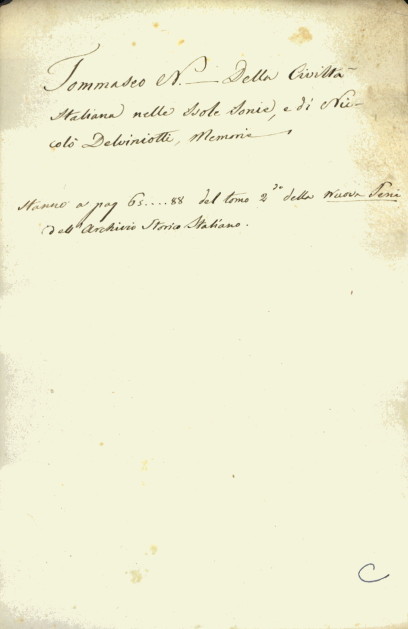 Tommaseo N. — Della Civiltà
Italiana nelle Isole Ionie, e di Nic-
colò Delviniotti, Memorie
Stanno a pag 65....88 del tomo 2do della Nuova Serie
dell'Archivio Storico Italiano.
C